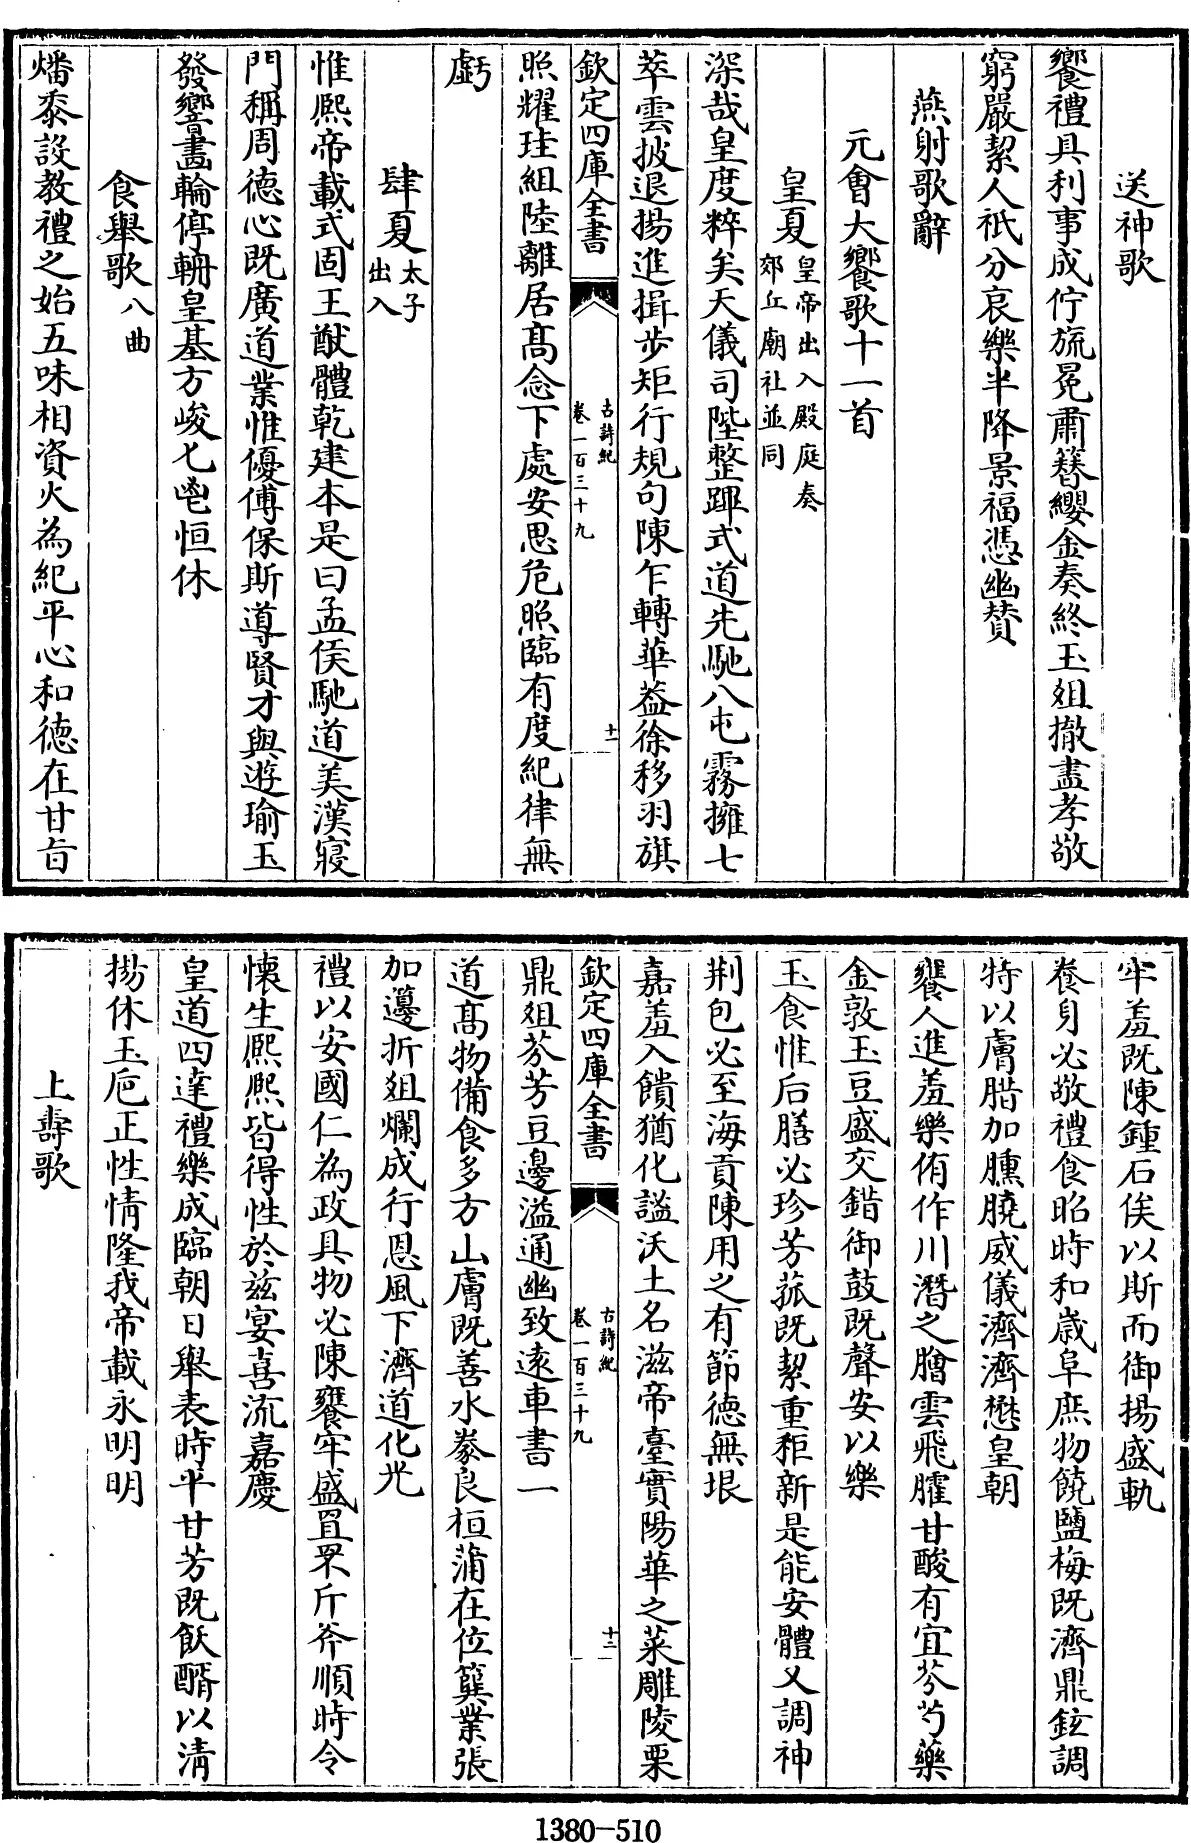 送神歌
饗禮具利事成佇旒冕肅簪纓金奏終玉俎撤盡孝敬
窮嚴絜人祇分哀樂半降景福憑幽贊
燕射歌辭
元會大饗歌十一首
皇夏皇帝出入殿庭奏
郊丘廟社並同
深哉皇度粹矣天儀司陛整蹕式道先馳八屯霧擁七
萃雲披退揚進揖步矩行規句陳乍轉華蓋徐移羽旗
欽定四庫全書
古詩紀
卷一百三十九
十一
照耀珪組陸離居髙念下處安思危照臨有度紀律無
虧
肆夏太子
出入
惟熙帝載式固王猷體乾建本是曰孟侯馳道美漢寢
門稱周德心既廣道業惟優傅保斯導賢才與遊瑜玉
發響畵輪停輈皇基方峻匕鬯恒休
食舉歌八曲
燔黍設教禮之始五味相資火為紀平心和德在甘旨
牢羞既陳鍾石俟以斯而御揚盛軌
養身必敬禮食昭時和歲阜庶物饒鹽梅既濟鼎鉉調
特以膚腊加臐膮威儀濟濟懋皇朝
饔人進羞樂侑作川潛之膾雲飛臛甘酸有宜芬芍藥
金敦玉豆盛交錯御鼓既聲安以樂
玉食惟后膳必珍芳菰既絜重秬新是能安體乂調神
荆包必至海貢陳用之有節德無垠
嘉羞入饋猶化謐沃土名滋帝臺實陽華之菜雕陵栗
欽定四庫全書
古詩紀
卷一百三十九
十二
鼎俎芬芳豆邊溢通幽致逺車書一
道髙物備食多方山膚既善水豢良桓蒲在位簨業張
加籩折俎爛成行恩風下濟道化光
禮以安國仁為政具物必陳饔牢盛罝罘斤斧順時令
懐生熙熙皆得性於兹宴喜流嘉慶
皇道四達禮樂成臨朝日舉表時平甘芳既飫醑以清
揚休玉巵正性情隆我帝載永明明
上壽歌
1380-510